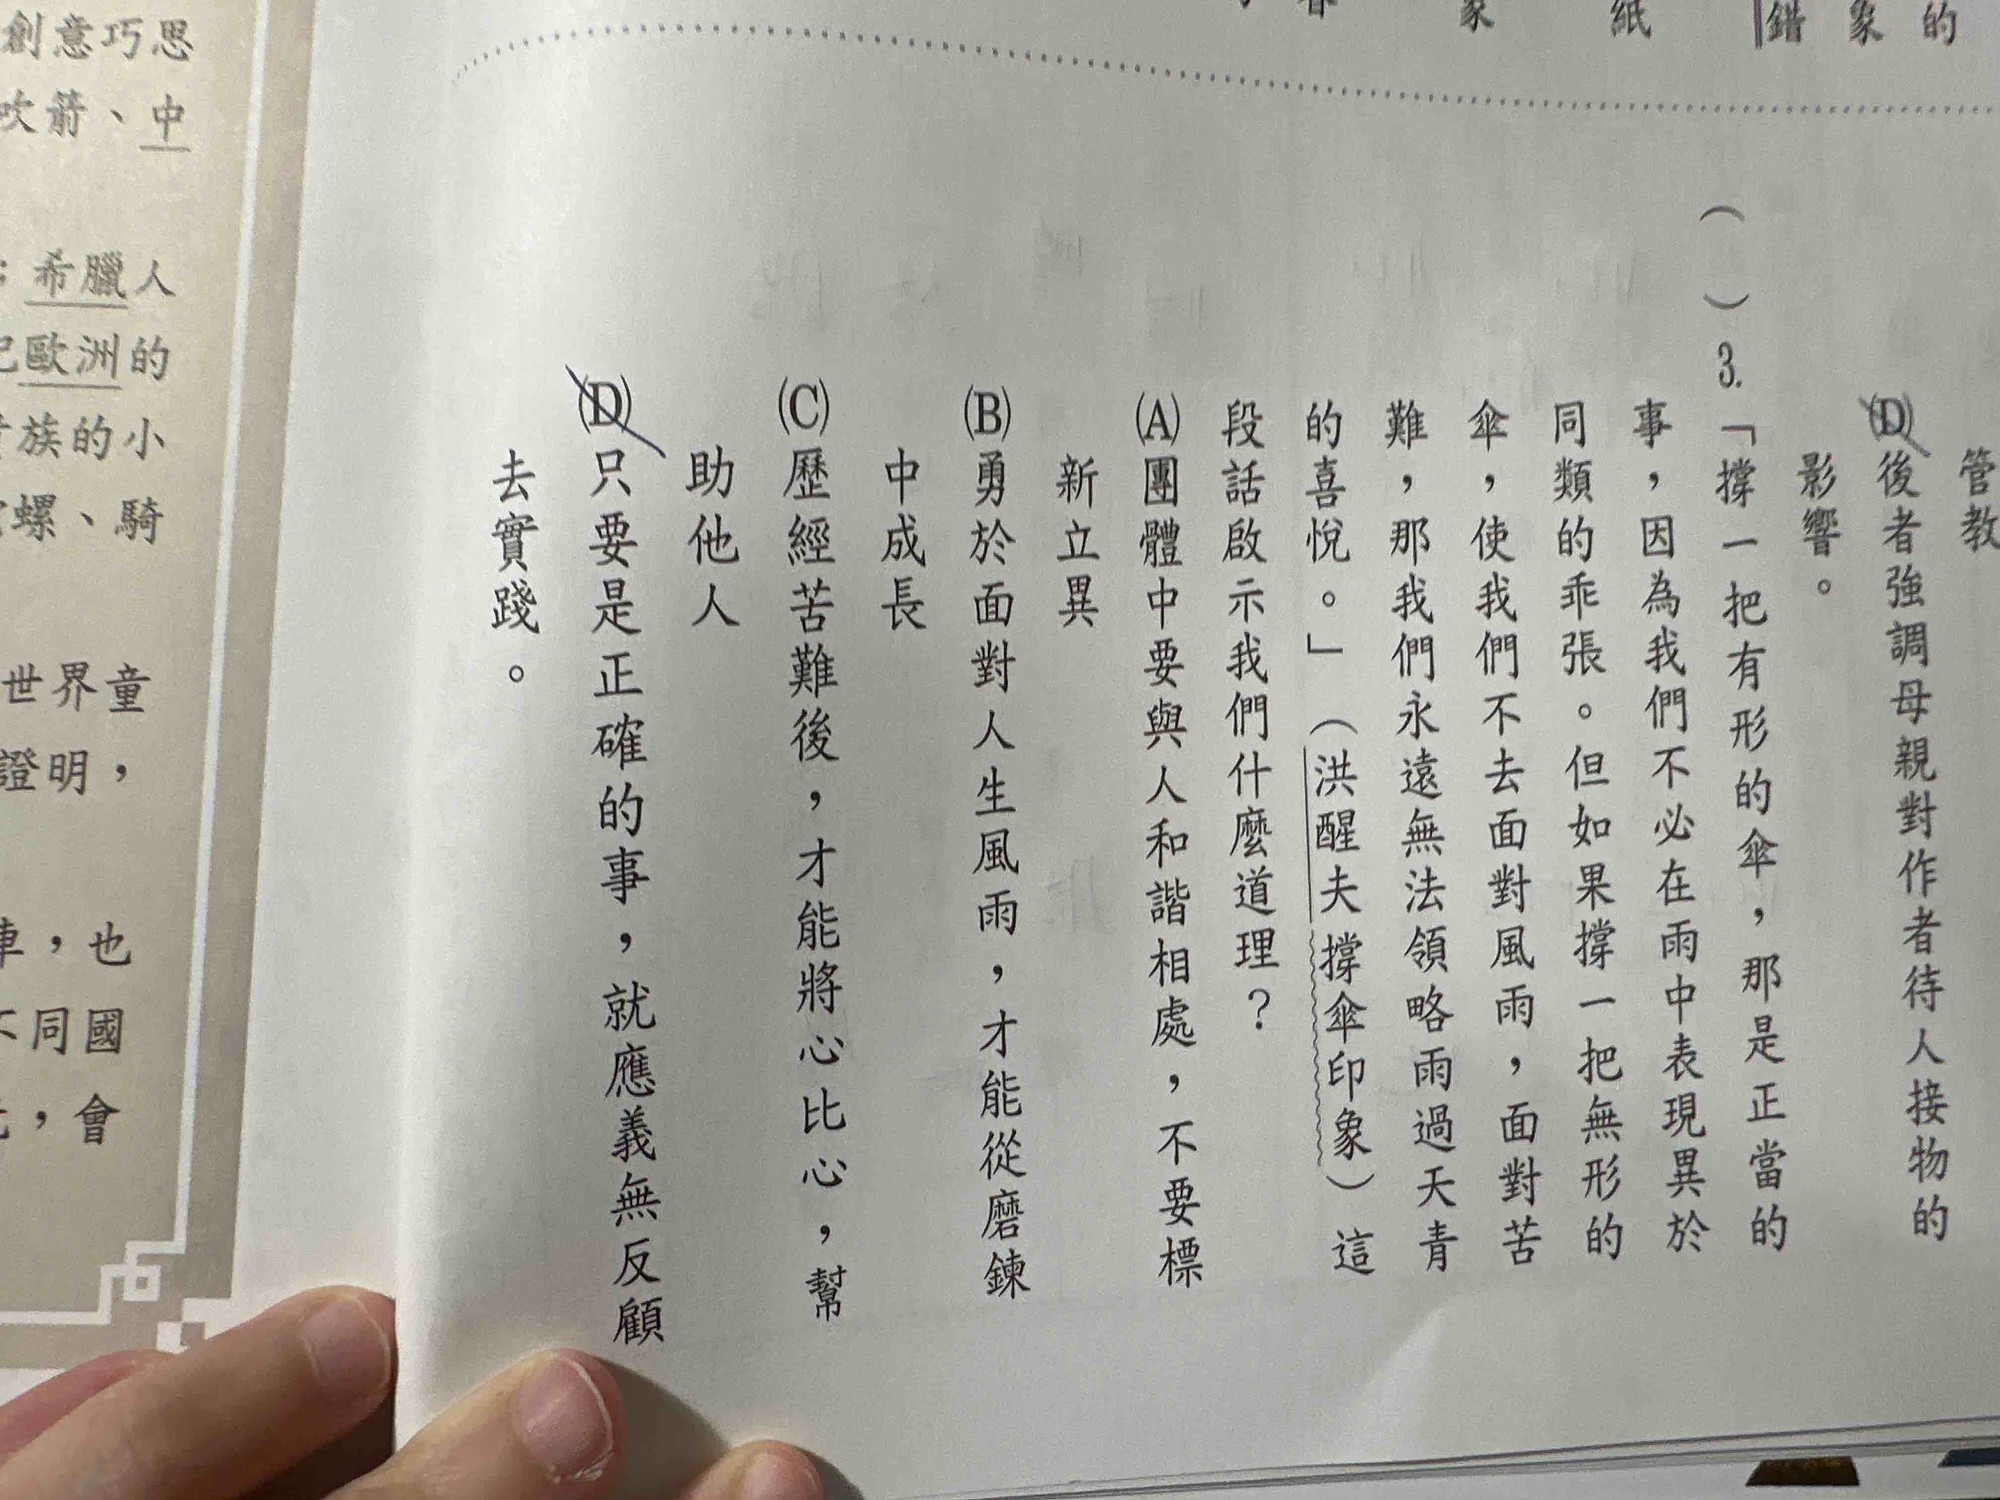 的
象
錯
紙
象
管教
(D)後者強調母親對作者待人接物的
影響。
(　)3.「撐一把有形的傘，那是正當的
事，因為我們不必在雨中表現異於
同類的乖張。但如果撐一把無形的
傘，使我們不去面對風雨，面對苦
難，那我們永遠無法領略雨過天青
的喜悅。」（洪醒夫撐傘印象）這
段話啟示我們什麼道理？
(A)團體中要與人和諧相處，不要標
新立異
(B)勇於面對人生風雨，才能從磨鍊
中成長
(C)歷經苦難後，才能將心比心，幫
助他人
(D)只要是正確的事，就應義無反顧
去實踐。
創意巧思
吹箭、中
；希臘人
歐洲的
族的小
螺、騎
世界童
證明，
，也
不同國
，會